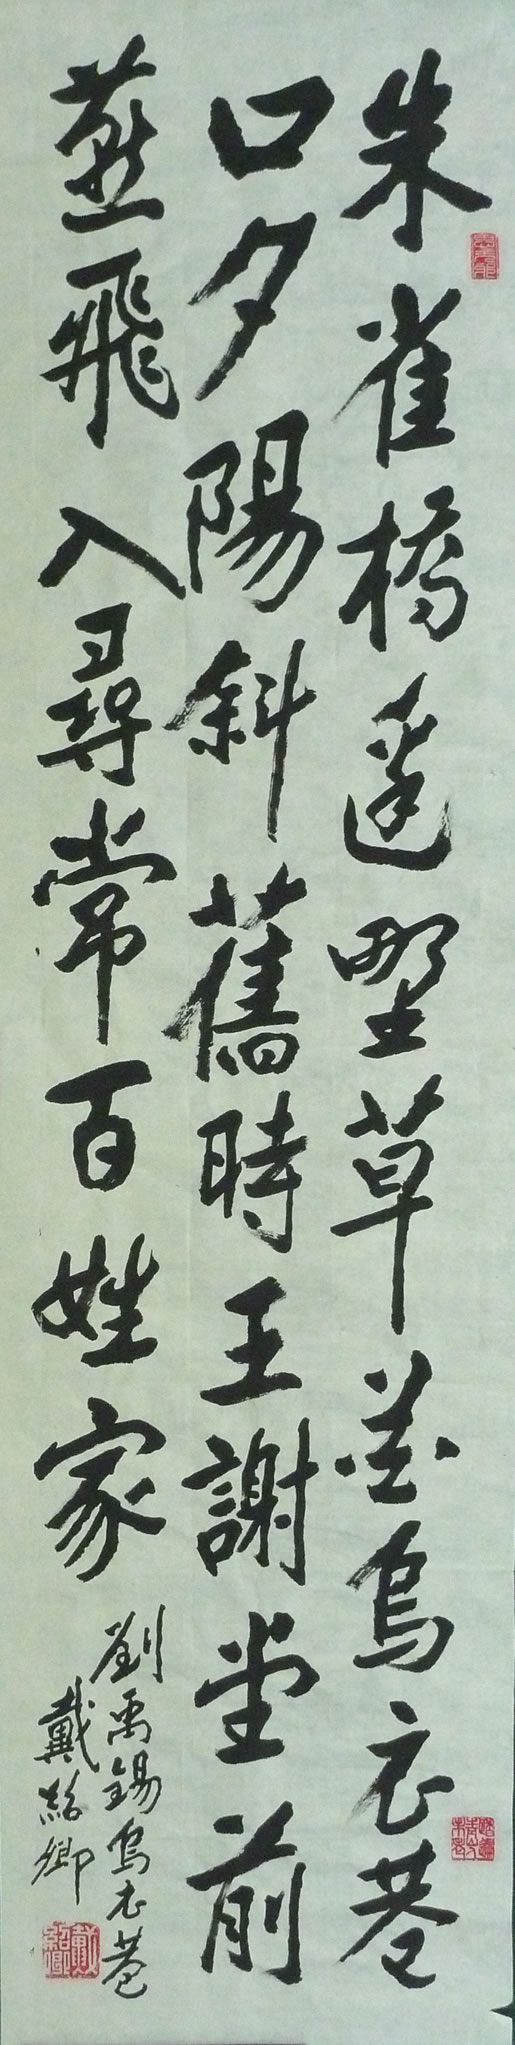 朱雀橋邊野草花烏衣巷
口夕陽斜舊時王謝堂前
燕飛入尋常百姓家
劉禹錫烏衣巷
戴紹卿